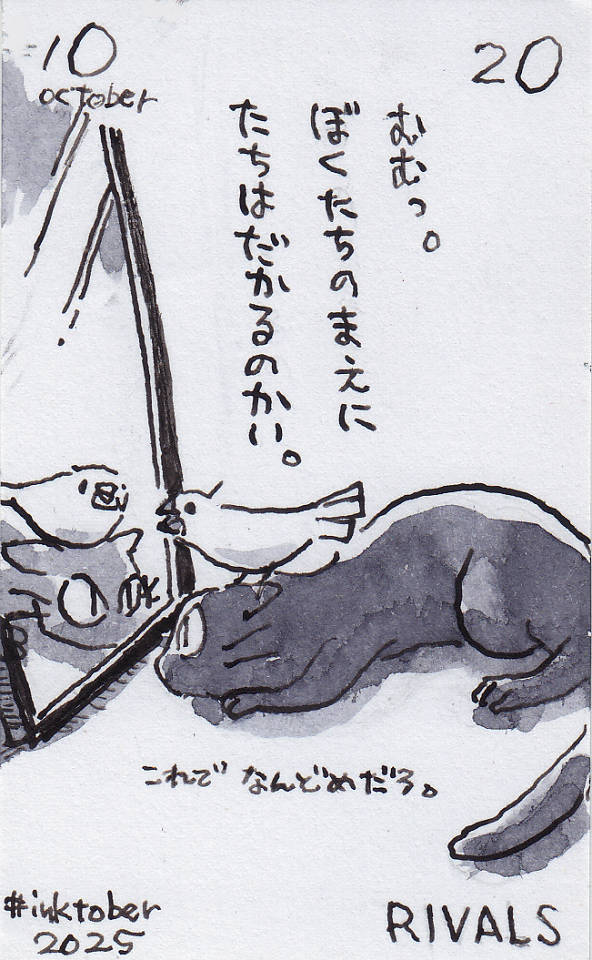 10
october
20
むむっ。
ぼくたちのまえに
たちはだかるのかい。
これで なんどめだろ。
#inktober
2025
RIVALS